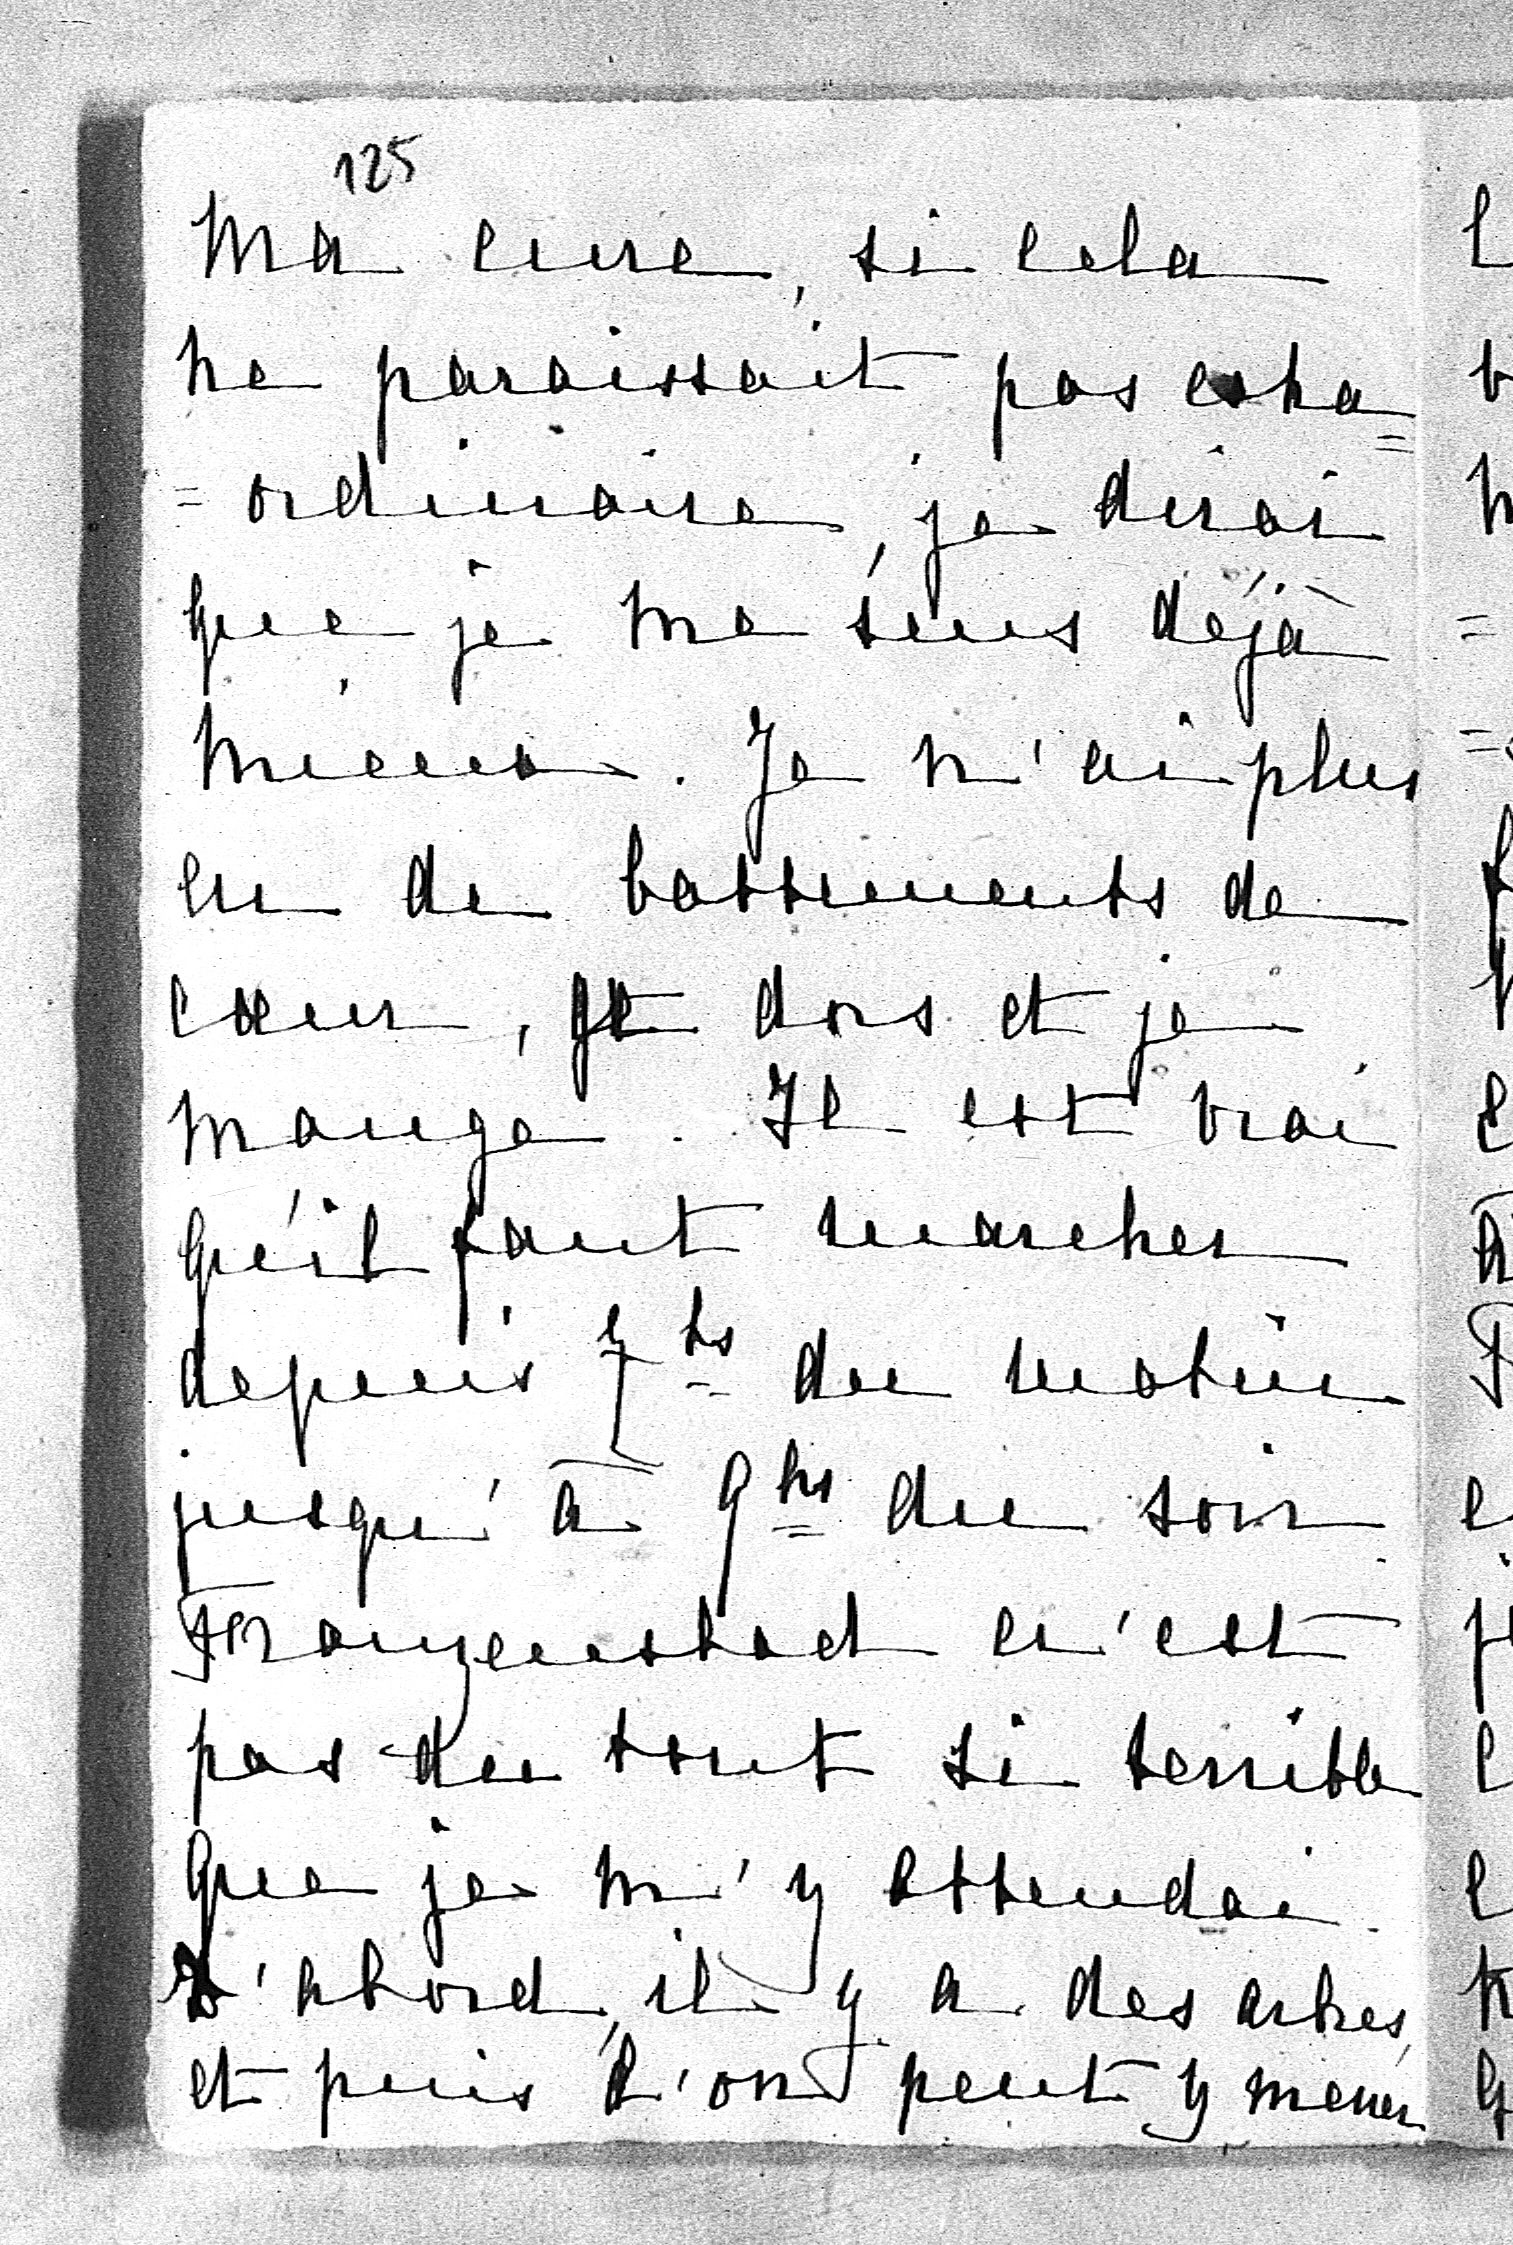 125
ma cure, si cela
ne paraissait pas extra=
=ordinaire, je dirai
que je me sens déjà
mieux. Je n'ai plus
eu de battements de
cœur, je dors et je
mange. Il est vrai
qu'il faut marcher
depuis 7 hs du matin
jusqu'à 9 hs du soir
Franzensbad n'est
pas du tout si terrible
que je m'y attendai.
D'abord, il y a des arbres,
et puis l'on peut y mener